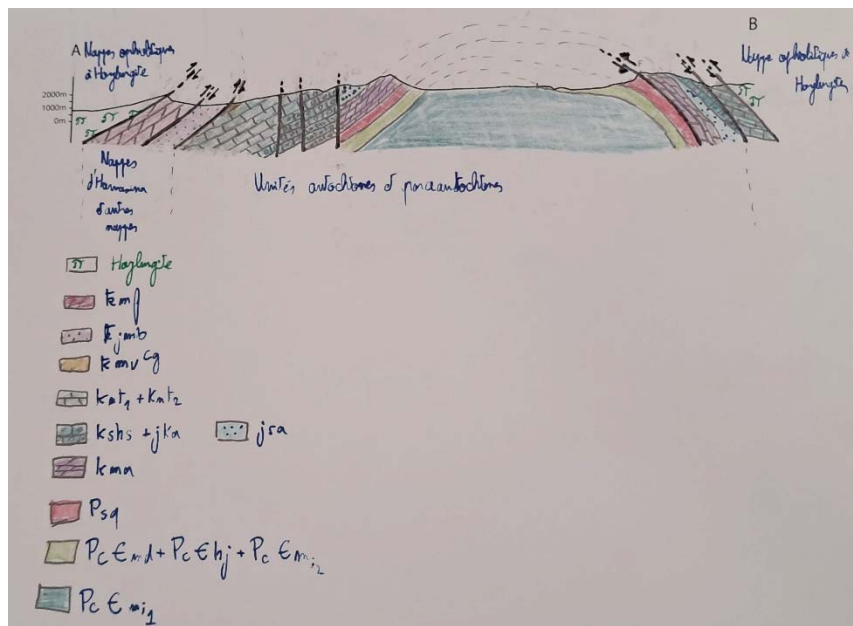 A Nappes ophiolitiques
à Harzburgite
B
Nappe ophiolitique à
Harzburgite
2000m
1000m
0m
Nappes
d'Hawasina
d'autres
nappes
Unités autochtones et parautochtones
Harzburgite
kmf
jmb
kmv cg
knt1 + knt2
kshs + jka
jsa
kma
Psq
Pc Є md + Pc Є hj + Pc Є mi2
Pc Є mi1